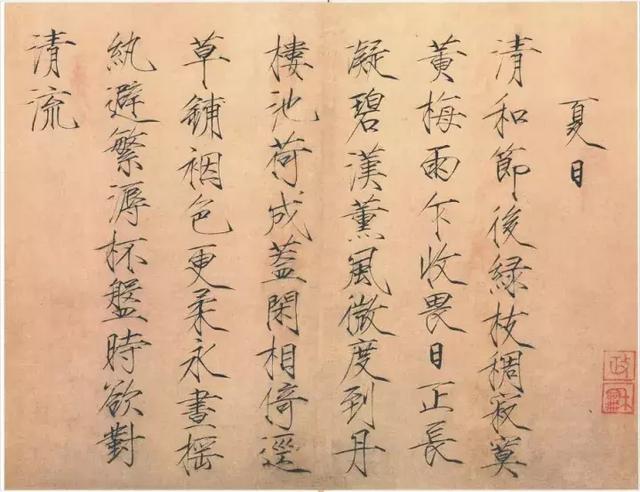 夏日
清和節後緑枝稠寂寞
黄梅雨乍收畏日正長
凝碧漢薰風微度到丹
樓池荷成蓋閑相倚逕
草鋪裀色更柔永晝搖
紈避繁溽杯盤時欲對
清流
政和